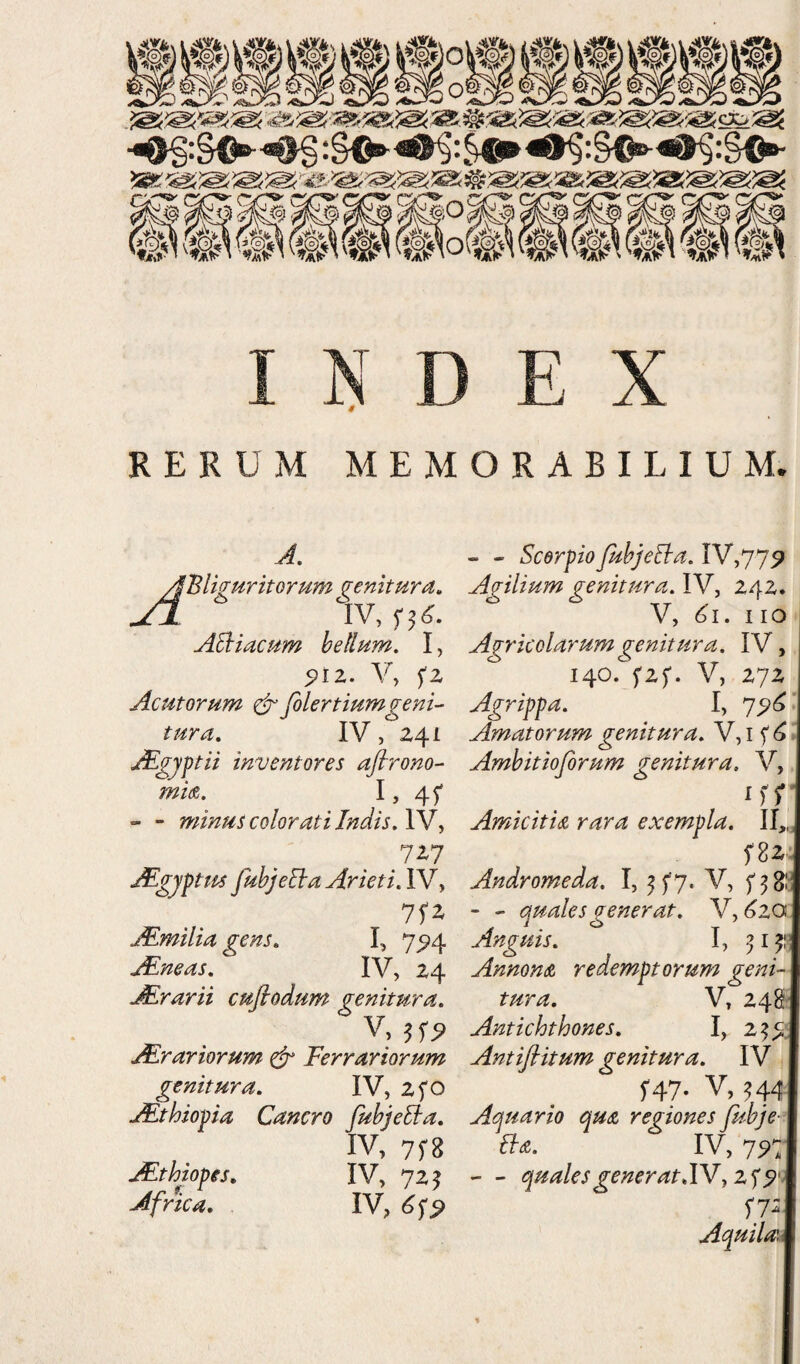 INDEX
RERUM MEMORABILIUM.
A.
ABliguritorum genitura.
IV, 536.
Actiacum bellum. I,
912. V, 52
Acutorum & solertium geni-
tura. IV, 241
Ægyptii inventores astrono-
miæ. I, 45
- - minus colorati Indis. IV,
727
Ægyptus subjecta Arieti. IV,
752
Æmilia gens. I, 794
Æneas. IV, 24
Ærarii custodum genitura.
V, 359
Ærariorum & Ferrariorum
genitura. IV, 250
Æthiopia Cancro subjecta.
IV, 758
Æthiopes. IV, 723
Africa. IV, 659
- - Scorpio subjecta. IV,779
Agilium genitura. IV, 242.
V, 61. 110
Agricolarum genitura. IV,
140. 525. V, 272
Agrippa. I, 796
Amatorum genitura. V, 156
Ambitiosorum genitura. V,
155
Amicitiæ rara exempla. II,
582
Andromeda. I, 357. V, 538
- - quales generat. V, 620
Anguis. I, 313
Annonæ redemptorum geni-
tura. V, 248
Antichthones. I, 235
Antistitum genitura. IV
547. V, 344
Aquario quæ regiones subje-
ctæ. IV, 797
- - quales generat. IV, 259
572
Aquila